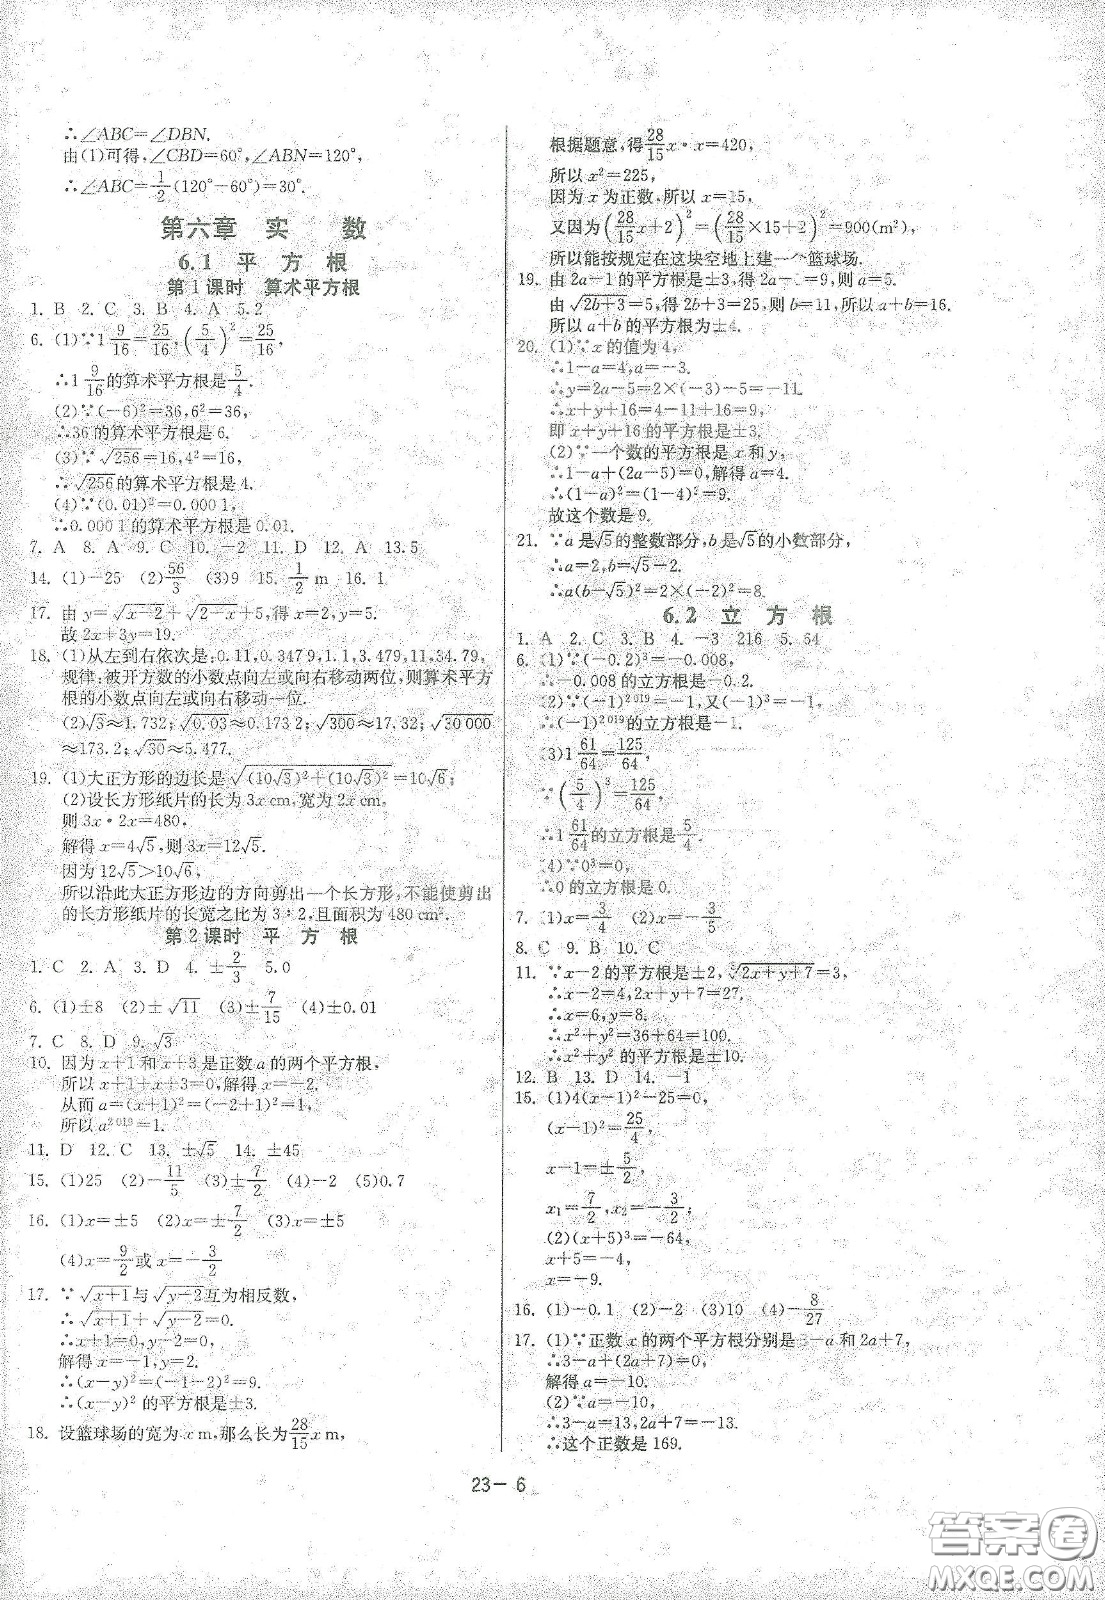 ∴∠ABC=∠DBN.
由(1)可得,∠CBD=60°,∠ABN=120°,
∴∠ABC=1/2(120°-60°)=30°.
第六章 实 数
6.1 平 方 根
第1课时 算术平方根
1. B 2. C 3. B 4. A 5. 2
6. (1)∵1 9/16=25/16,(5/4)²=25/16,
∴1 9/16的算术平方根是5/4.
(2)∵(-6)²=36,6²=36,
∴36的算术平方根是6.
(3)∵√256=16,4²=16,
∴√256的算术平方根是4.
(4)∵(0.01)²=0.000 1,
∴0.000 1的算术平方根是0.01.
7. A 8. A 9. C 10. -2 11. D 12. A 13. 5
14. (1)-25 (2)56/3 (3)9 15. 1/2 m 16. 1
17. 由y=√x-2+√2-x+5,得x=2,y=5.
故2x+3y=19.
18. (1)从左到右依次是:0.11,0.347 9,1.1,3.479,11,34.79,
规律:被开方数的小数点向左或向右移动两位,则算术平方
根的小数点向左或向右移动一位.
(2)√3≈1.732;√0.03≈0.173 2;√300≈17.32;√30 000
≈173.2;√30≈5.477.
19. (1)大正方形的边长是√(10√3)²+(10√3)²=10√6;
(2)设长方形纸片的长为3x cm,宽为2x cm,
则3x·2x=480.
解得x=4√5,则3x=12√5.
因为12√5>10√6,
所以沿此大正方形边的方向剪出一个长方形,不能使剪出
的长方形纸片的长宽之比为3∶2,且面积为480 cm².
第2课时 平 方 根
1. C 2. A 3. D 4. ±2/3 5. 0
6. (1)±8 (2)±√11 (3)±7/15 (4)±0.01
7. C 8. D 9. √3
10. 因为x+1和x+3是正数a的两个平方根,
所以x+1+x+3=0,解得x=-2.
从而a=(x+1)²=(-2+1)²=1.
所以a²⁰¹⁹=1.
11. D 12. C 13. ±√5 14. ±45
15. (1)25 (2)-11/5 (3)±7/2 (4)-2 (5)0.7
16. (1)x=±5 (2)x=±7/2 (3)x=±5
(4)x=9/2或x=-3/2
17. ∵√x+1与√y-2互为相反数,
∴√x+1+√y-2=0.
∴x+1=0,y-2=0.
解得x=-1,y=2.
∴(x-y)²=(-1-2)²=9.
∴(x-y)²的平方根是±3.
18. 设篮球场的宽为x m,那么长为28/15x m,
根据题意,得28/15x·x=420,
所以x²=225,
因为x为正数,所以x=15,
又因为(28/15x+2)²=(28/15×15+2)²=900(m²),
所以能按规定在这块空地上建一个篮球场.
19. 由2a-1的平方根是±3,得2a-1=9,则a=5.
由√2b+3=5,得2b+3=25,则b=11,所以a+b=16.
所以a+b的平方根为±4.
20. (1)∵x的值为4,
∴1-a=4,a=-3.
∴y=2a-5=2×(-3)-5=-11.
∴x+y+16=4-11+16=9.
即x+y+16的平方根是±3.
(2)∵一个数的平方根是x和y,
∴1-a+(2a-5)=0,解得a=4.
∴(1-a)²=(1-4)²=9.
故这个数是9.
21. ∵a是√5的整数部分,b是√5的小数部分,
∴a=2,b=√5-2.
∴a(b-√5)²=2×(-2)²=8.
6.2 立 方 根
1. A 2. C 3. B 4. -3 216 5. 64
6. (1)∵(-0.2)³=-0.008,
∴-0.008的立方根是-0.2.
(2)∵(-1)²⁰¹⁹=-1,又(-1)³=-1,
∴(-1)²⁰¹⁹的立方根是-1.
(3)1 61/64=125/64,
∵(5/4)³=125/64,
∴1 61/64的立方根是5/4.
(4)∵0³=0,
∴0的立方根是0.
7. (1)x=3/4 (2)x=-3/5
8. C 9. B 10. C
11. ∵x-2的平方根是±2,∛2x+y+7=3,
∴x-2=4,2x+y+7=27.
∴x=6,y=8.
∴x²+y²=36+64=100.
∴x²+y²的平方根是±10.
12. B 13. D 14. -1
15. (1)4(x-1)²-25=0,
(x-1)²=25/4,
x-1=±5/2,
x₁=7/2,x₂=-3/2;
(2)(x+5)³=-64,
x+5=-4,
x=-9.
16. (1)-0.1 (2)-2 (3)10 (4)-8/27
17. (1)∵正数x的两个平方根分别是3-a和2a+7,
∴3-a+(2a+7)=0,
解得a=-10.
(2)∵a=-10,
∴3-a=13,2a+7=-13.
∴这个正数是169.
23— 6
答案卷
MXQE.COM